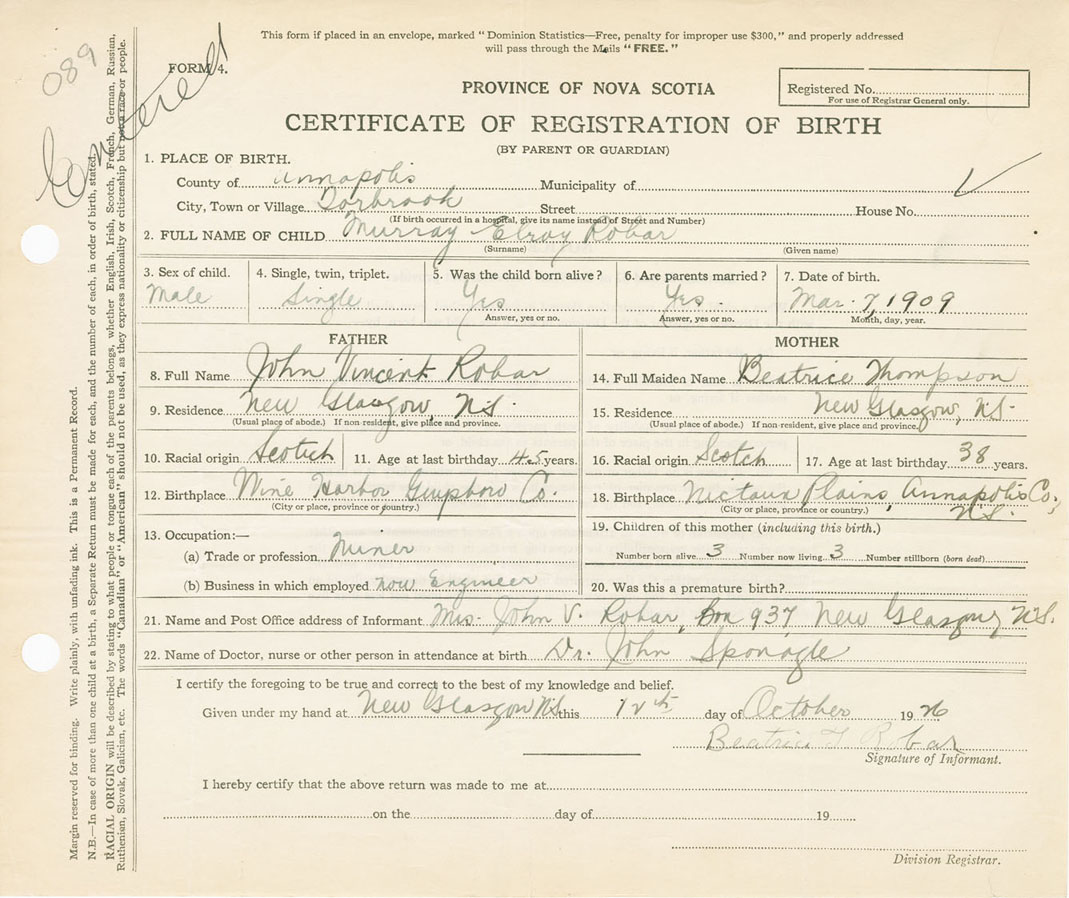 This form if placed in an envelope, marked "Dominion Statistics—Free, penalty for improper use $300," and properly addressed
will pass through the Mails "FREE."
089
FORM 4.
PROVINCE OF NOVA SCOTIA
Registered No.
For use of Registrar General only.
CERTIFICATE OF REGISTRATION OF BIRTH
(BY PARENT OR GUARDIAN)
1. PLACE OF BIRTH.
County of Annapolis Municipality of
City, Town or Village Torbrook Street House No.
(If birth occurred in a hospital, give its name instead of Street and Number)
2. FULL NAME OF CHILD Murray Elroy Robar
(Surname) (Given name)
3. Sex of child. 4. Single, twin, triplet. 5. Was the child born alive? 6. Are parents married? 7. Date of birth.
Male Single Yes Yes. Mar. 7, 1909
Answer, yes or no. Answer, yes or no. Month, day, year.
FATHER MOTHER
8. Full Name John Vincent Robar 14. Full Maiden Name Beatrice Thompson
9. Residence New Glasgow, N.S. 15. Residence New Glasgow, N.S.
(Usual place of abode.) If non-resident, give place and province. (Usual place of abode.) If non-resident, give place and province.
10. Racial origin Scotch 11. Age at last birthday 45 years. 16. Racial origin Scotch 17. Age at last birthday 38 years.
12. Birthplace Wine Harbor Guysboro Co. 18. Birthplace Nictaux Plains, Annapolis Co,
(City or place, province or country.) (City or place, province or country.) N.S.
13. Occupation:— 19. Children of this mother (including this birth.)
(a) Trade or profession Miner Number born alive 3 Number now living 3 Number stillborn (born dead)
(b) Business in which employed now Engineer 20. Was this a premature birth?
21. Name and Post Office address of Informant Mrs. John V. Robar, Box 937, New Glasgow N.S.
22. Name of Doctor, nurse or other person in attendance at birth Dr. John Sponagle
I certify the foregoing to be true and correct to the best of my knowledge and belief.
Given under my hand at New Glasgow N.S. this 12th day of October 1926
Beatrice T Robar
Signature of Informant.
I hereby certify that the above return was made to me at
on the day of 19
Division Registrar.
Margin reserved for binding. Write plainly, with unfading ink. This is a Permanent Record.
N.B.—In case of more than one child at a birth, a Separate Return must be made for each, and the number of each, in order of birth, stated.
RACIAL ORIGIN will be described by stating to what people or tongue each of the parents belongs, whether English, Irish, Scotch, French, German, Russian,
Ruthenian, Slovak, Galician, etc. The words "Canadian" or "American" should not be used, as they express nationality or citizenship but not a race or people.